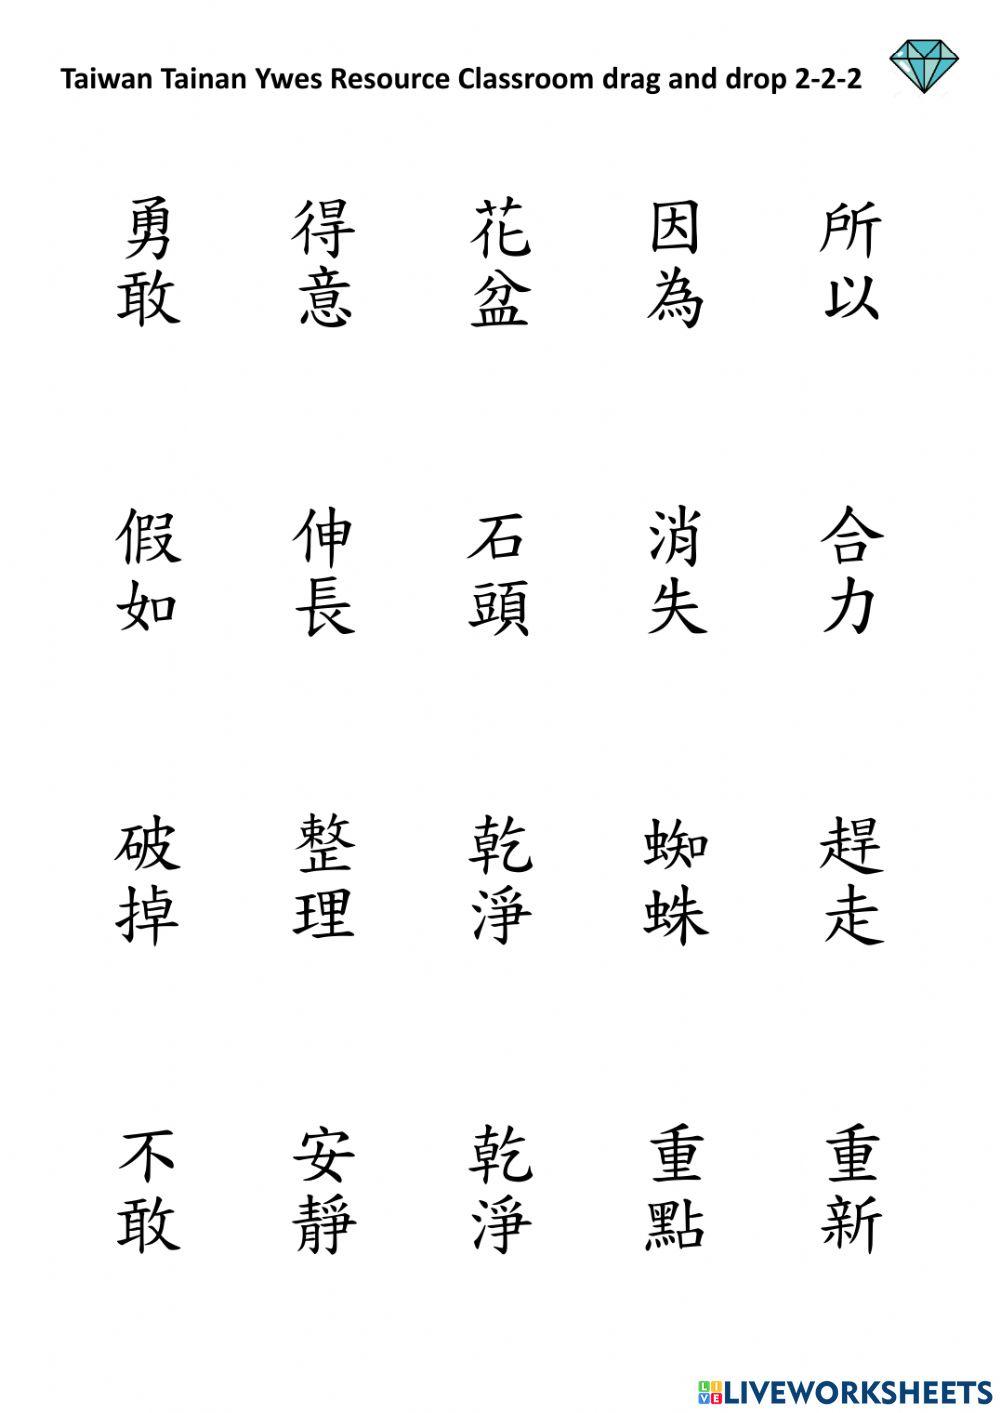 Taiwan Tainan Ywes Resource Classroom drag and drop 2-2-2
勇敢
得意
花盆
因為
所以
假如
伸長
石頭
消失
合力
破掉
整理
乾淨
蜘蛛
趕走
不敢
安靜
乾淨
重點
重新
LIVE LIVEWORKSHEETS